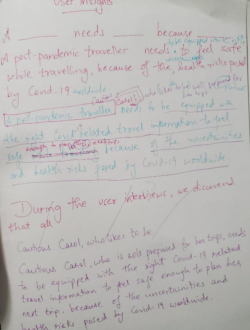 User Insights
A ____ needs ____ because ____
A post-pandemic traveller needs to feel safe
while travelling, because of the health risks posed
by Covid-19 worldwide.
A post-pandemic traveller needs to be equipped with
the right Covid related travel information to feel
safe because of the uncertainties
and health risks posed by Covid-19 worldwide.
During the user interviews, we discovered
that all
Cautious Carol, who likes to be
Cautious Carol, who is well prepared for her trips, needs
to be equipped with the right Covid-19 related
travel information to feel safe enough to plan her
next trip, because of the uncertainties and
health risks posed by Covid-19 worldwide.